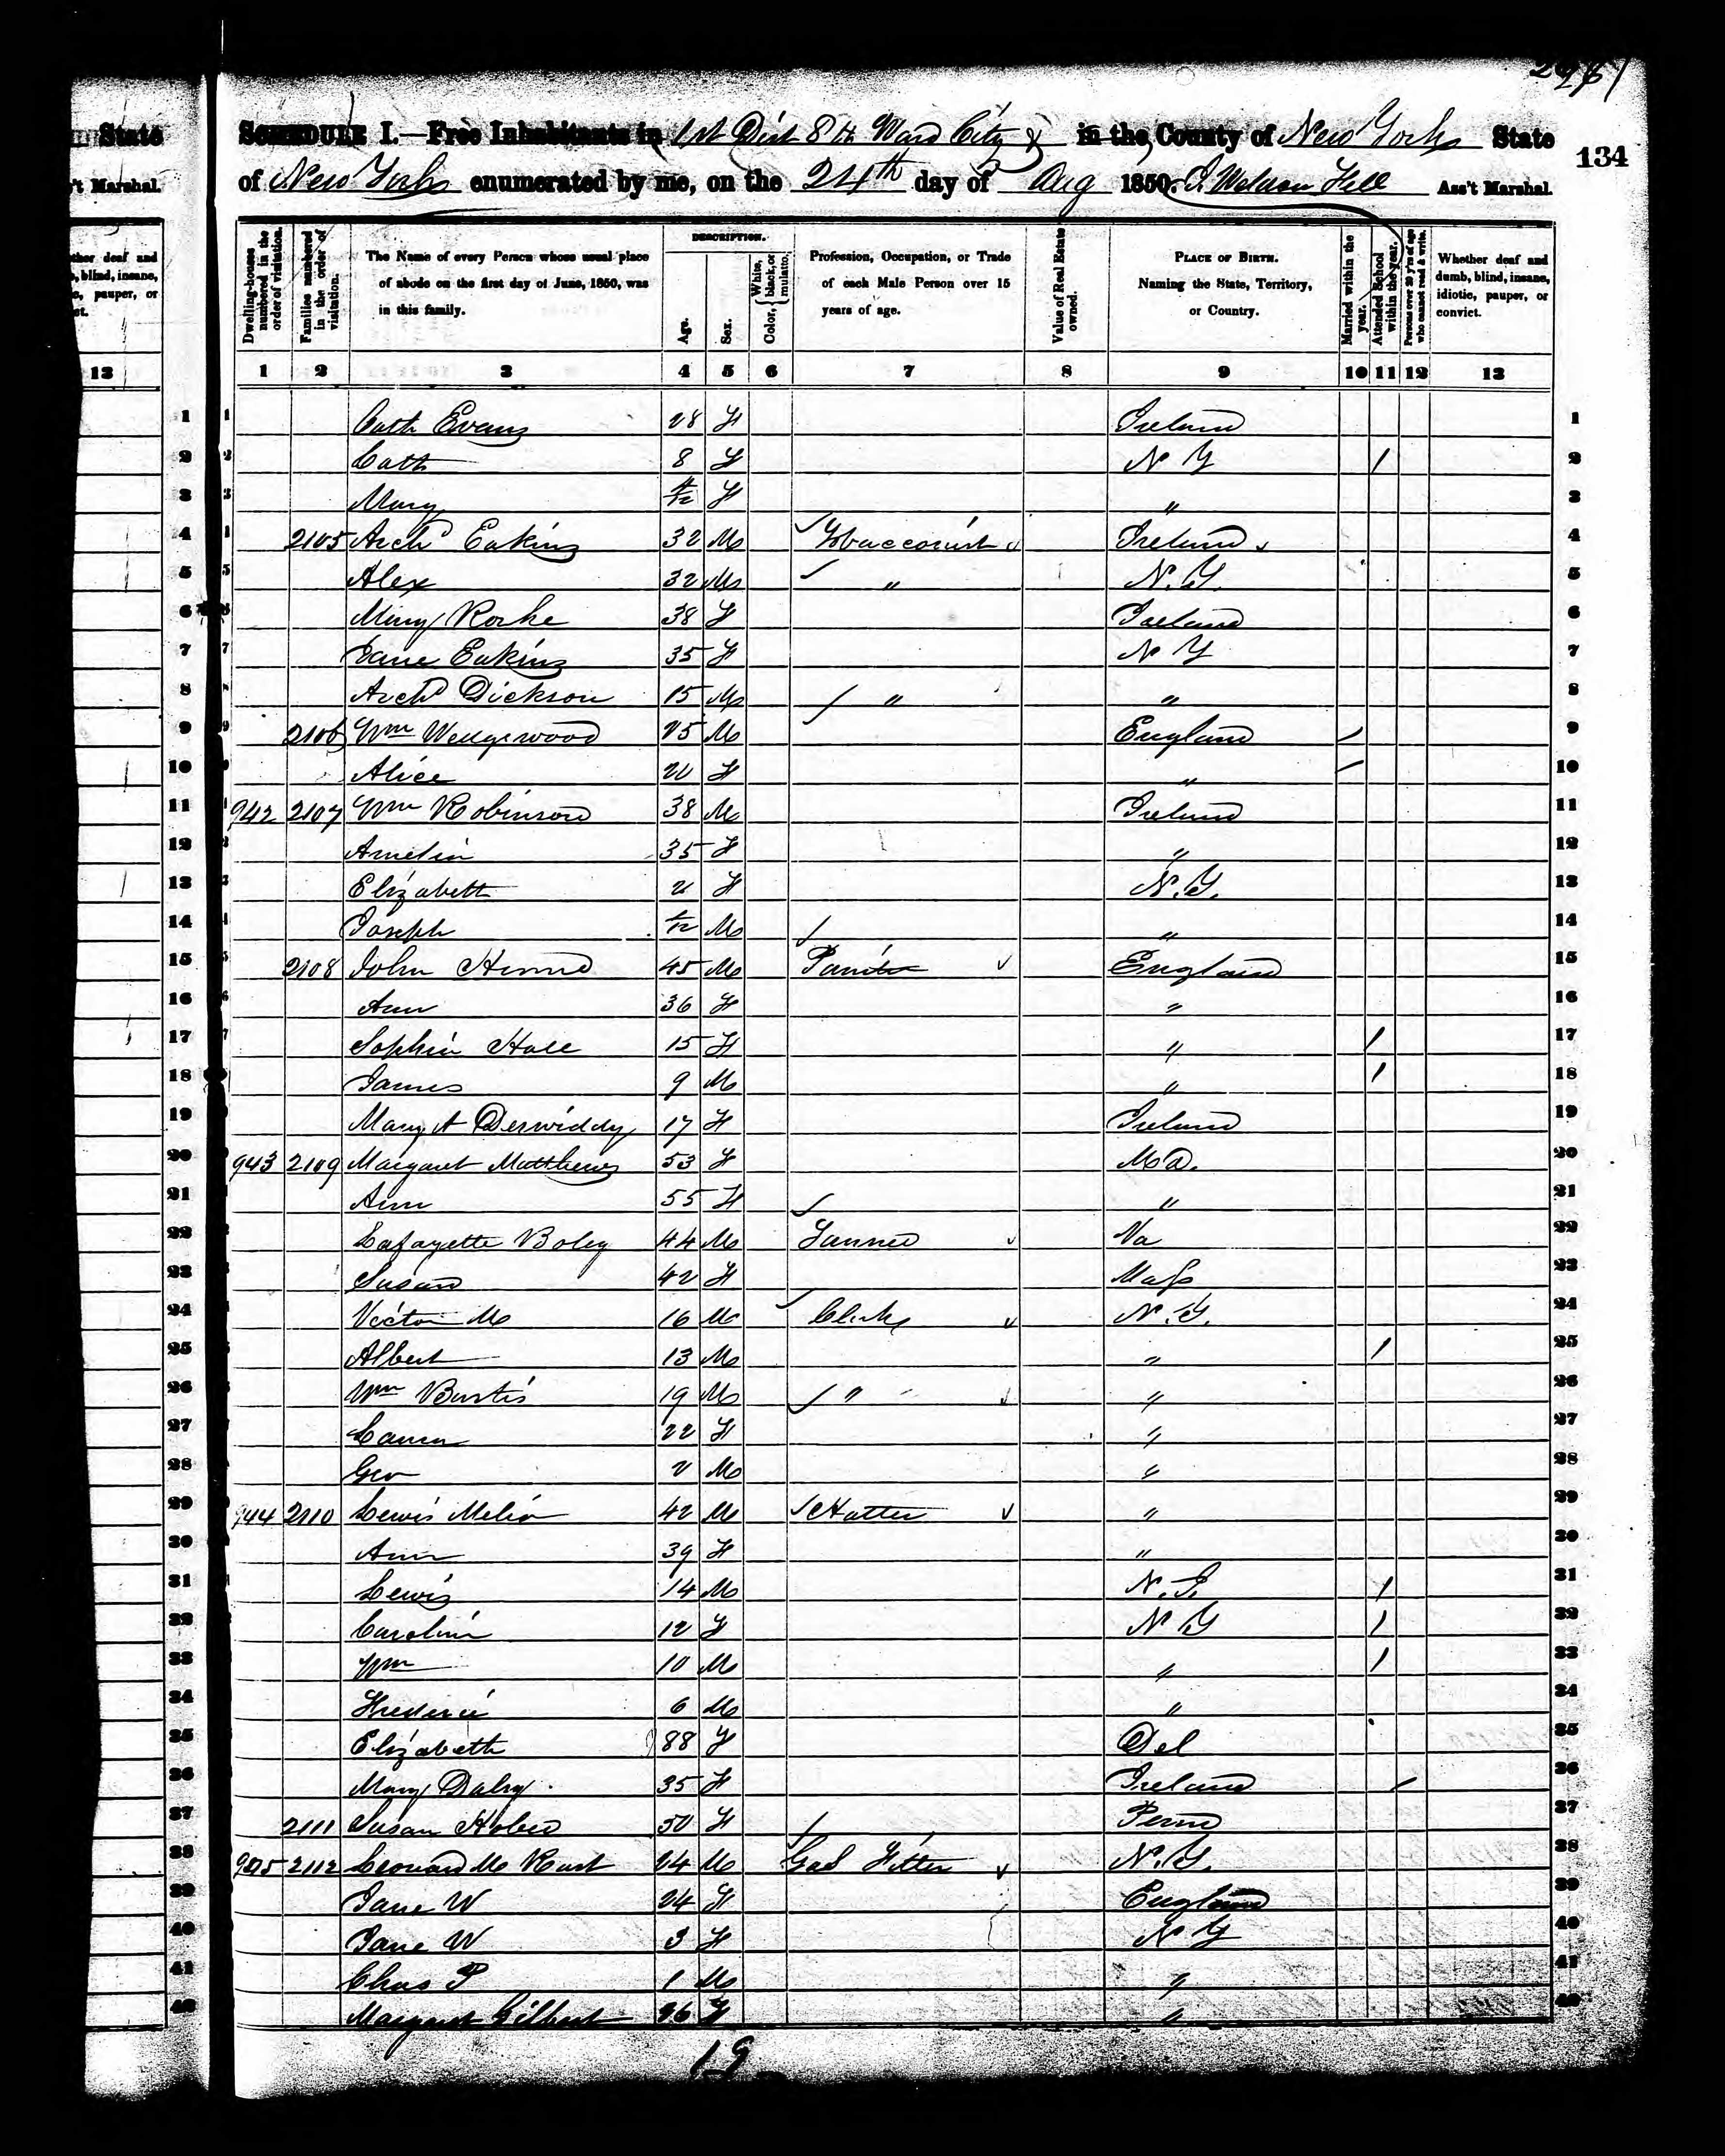 134
SCHEDULE I.—Free Inhabitants in 1st Dist 8th Ward City & in the County of New York State
of New York enumerated by me, on the 24th day of Aug 1850. Hill Ass't Marshal.
Dwelling-houses numbered in the order of visitation.
Families numbered in the order of visitation.
The Name of every Person whose usual place of abode on the first day of June, 1850, was in this family.
DESCRIPTION.
Age.
Sex.
Color, White, black, or mulatto.
Profession, Occupation, or Trade of each Male Person over 15 years of age.
Value of Real Estate owned.
PLACE OF BIRTH. Naming the State, Territory, or Country.
Married within the year.
Attended School within the year.
Persons over 20 y'rs of age who cannot read & write.
Whether deaf and dumb, blind, insane, idiotic, pauper, or convict.
1 2 3 4 5 6 7 8 9 10 11 12 13
1 Cath Evans 28 F Ireland 1
2 Cath 8 F N Y / 2
3 Mary F " 3
4 2105 Archd Eakins 32 M Tobacconist Ireland 4
5 Alex 32 M " N.Y. 5
6 Rorke 38 F Ireland 6
7 Jane Eakins 35 F N Y 7
8 Archd Dickson 15 M " " 8
9 2106 Wm Wedgewood 25 M England / 9
10 Alice F " / 10
11 942 2107 Wm Robinson 38 M Ireland 11
12 Amelia 35 F " 12
13 Elizabeth 2 F N.Y. 13
14 Joseph M " 14
15 2108 John 45 M England 15
16 Ann 36 F " 16
17 Sophia Hall 15 F " / 17
18 James 9 M " / 18
19 Mary A Derwiddy 17 F Ireland 19
20 943 2109 Margaret Matthews 53 F Md. 20
21 Ann 55 F " 21
22 Lafayette Boley 44 M Tanner Va 22
23 Susan 42 F Mass 23
24 Victor M 16 M Clerk N.Y. 24
25 Albert 13 M " / 25
26 Wm Burtis 19 M " " 26
27 Laura 22 F " 27
28 Geo 2 M " 28
29 944 2110 Lewis Melio 42 M Hatter " 29
30 Ann 39 F " 30
31 Lewis 14 M N.J. / 31
32 Caroline 12 F N Y / 32
33 Wm 10 M " / 33
34 Frederic 6 M " 34
35 Elizabeth 88 F Del 35
36 Mary Daly 35 F Ireland / 36
37 2111 Susan 50 F Penn 37
38 945 2112 Leonard M 24 M Gas Fitter N.Y. 38
39 Jane W 24 F England 39
40 Jane W 3 F N Y 40
41 Chas P 1 M " 41
42 Margaret Gilbert 26 F " 42
19